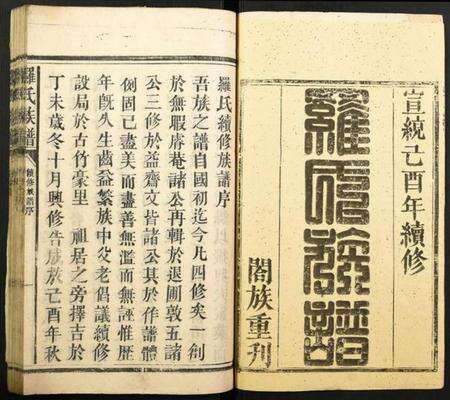 宣統己酉年續修
羅氏族譜
闔族重刋
羅氏續修族譜序
吾族之譜自國初迄今凡四修矣一創
於無暇睿庵諸公再輯於退圃敦五諸
公三修於益齋文皆諸公其於作譜體
例固已盡美而盡善無濫而無誣惟歷
年旣久生齒益繁族中父老倡議續修
設局於古竹豪里 祖居之旁擇吉於
丁未歲冬十月興修告成於己酉年秋
羅氏族譜
續修族譜序